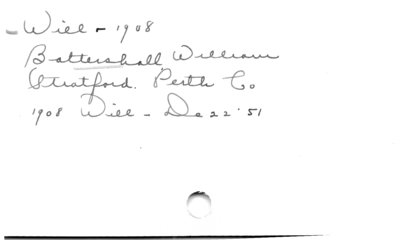 Will - 1908
Battershall William
Stratford. Perth Co
1908 Will - De 22 '51